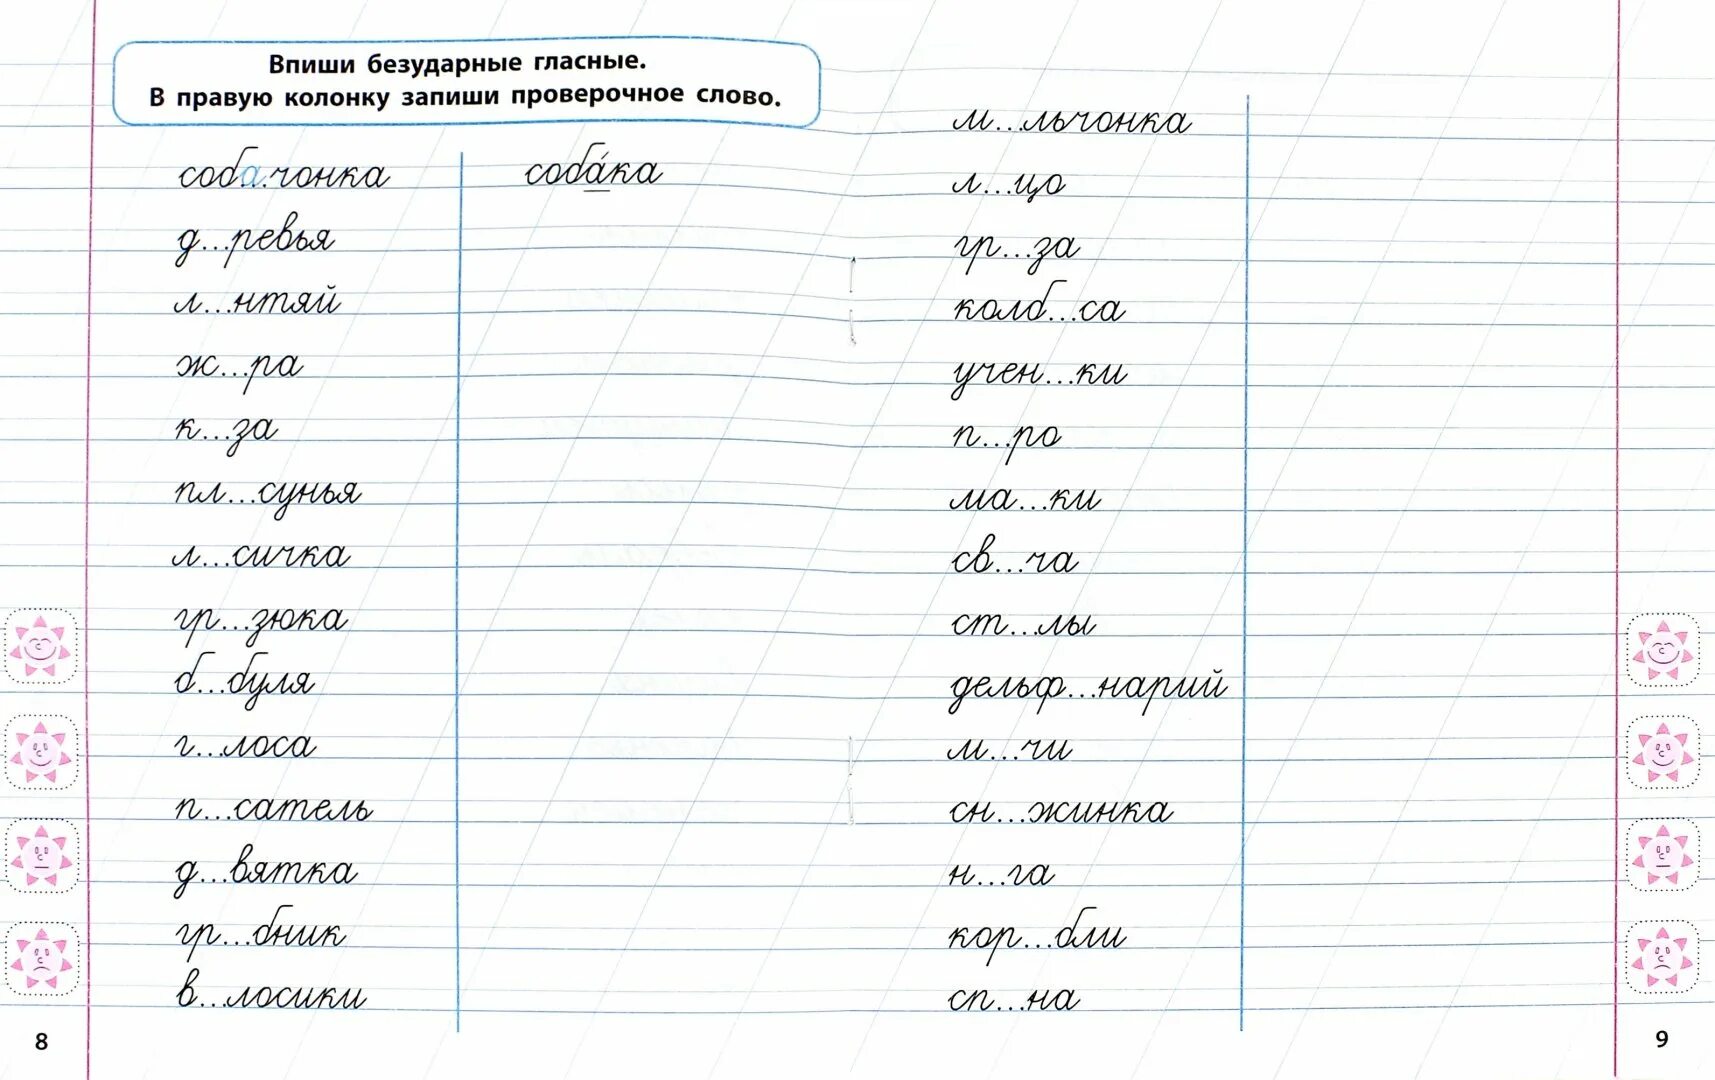 Впиши безударные гласные.
В правую колонку запиши проверочное слово.
соб.а.чонка соба́ка
д...ревья
л...нтяй
ж...ра
к...за
пл...сунья
л...сичка
гр...зюка
б...буля
г...лоса
п...сатель
д...вятка
гр...бник
в...лосики
8
м...льчонка
л...цо
гр...за
колб...са
учен...ки
п...ро
ма...ки
св...ча
ст...лы
дельф...нарий
м...чи
сн...жинка
н...га
кор...бли
сп...на
9